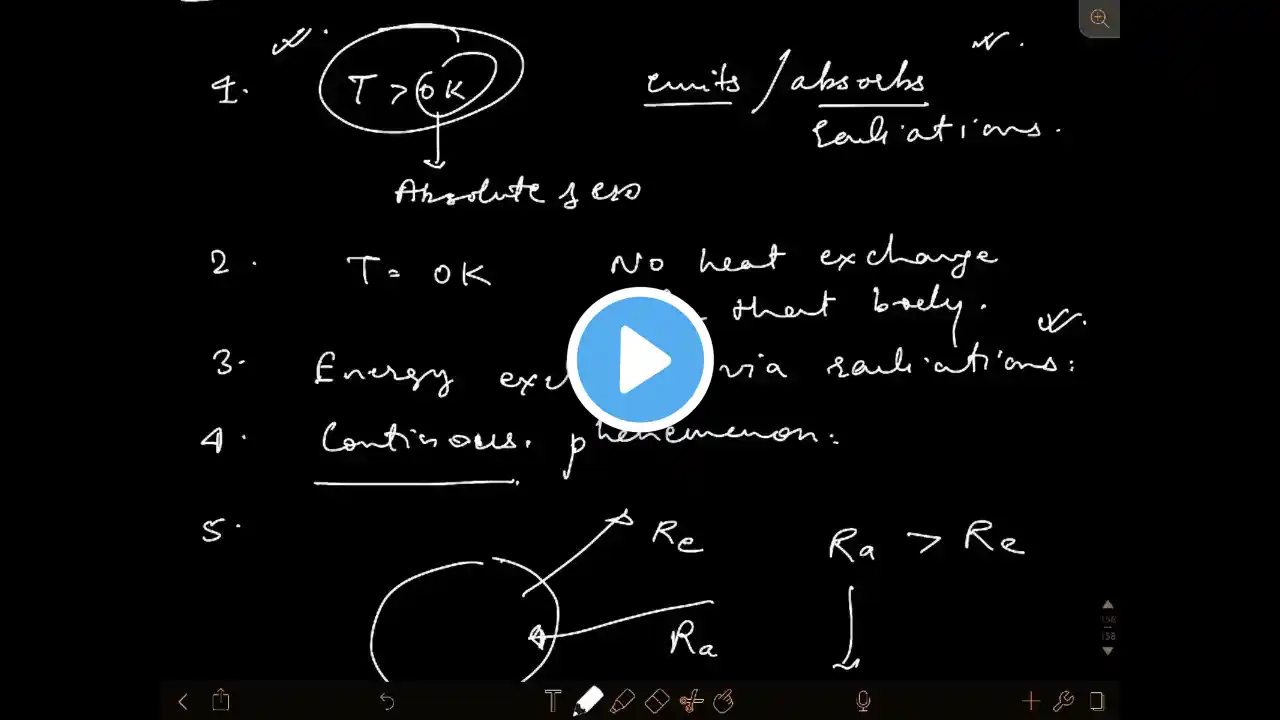 1. T > 0K emits / absorbs
radiations.
Absolute zero
2. T = 0K No heat exchange
that body.
3. Energy via radiations.
4. Continous phenomenon.
5. Re Ra > Re
Ra
T
158
158